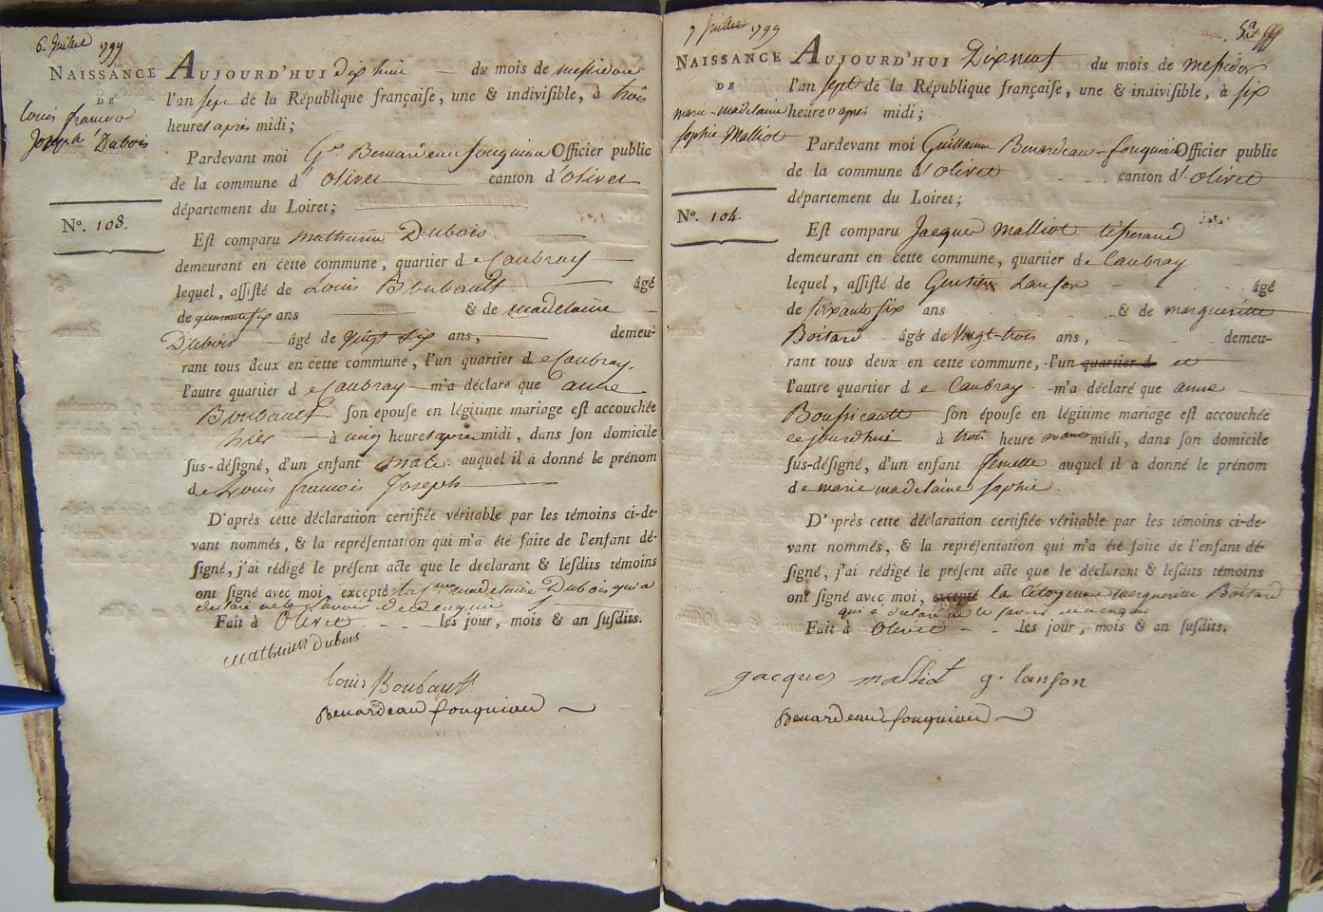 6. Juillet 1799
NAISSANCE
DE
Louis francois
Joseph Dubois
N°. 108.
AUJOURD'HUI dix huit du mois de messidor
l'an sept de la République françaiſe, une & indiviſible, à trois
heures après midi;
Pardevant moi G.me Benardeau fouquiau Officier public
de la commune d'olivet canton d'olivet
département du Loiret;
Eſt comparu mathurin Dubois
demeurant en cette commune, quartier de Caubray
lequel, aſſiſté de Louis Boubault âgé
de quarante six ans & de madelaine
Dubois âgé de vingt six ans, demeu-
rant tous deux en cette commune, l'un quartier de Caubray,
l'autre quartier de Caubray m'a déclaré que anne
Boubault ſon épouſe en légitime mariage eſt accouchée
hier à cinq heures après midi, dans ſon domicile
ſus-déſigné, d'un enfant male auquel il à donné le prénom
de Louis francois Joseph
D'après cette déclaration certifiée véritable par les témoins ci-de-
vant nommés, & la repréſentation qui m'a été faite de l'enfant dé-
ſigné, j'ai rédigé le préſent acte que le déclarant & leſdits témoins
ont ſigné avec moi excepté madelaine Dubois qui a
declaré ne le savoir
Fait à Olivet les jour, mois & an ſuſdits.
mathurin dubois
louis Boubault
Benardeau fouquiau
7 Juillet 1799
NAISSANCE
DE
marie-madelaine
sophie Malliot
N°. 104.
AUJOURD'HUI Dixneuf du mois de messidor
l'an sept de la République françaiſe, une & indiviſible, à six
heures après midi;
Pardevant moi Guillaume Benardeau-fouquiau Officier public
de la commune d'olivet canton d'olivet
département du Loiret;
Eſt comparu Jacque Malliot tisserand
demeurant en cette commune, quartier de Caubray
lequel, aſſiſté de Gentien Lanson âgé
de soixante six ans & de margueritte
Boitard âgé de Vingt-trois ans, demeu-
rant tous deux en cette commune, l'un quartier d et
l'autre quartier de Caubray m'a déclaré que anne
Bouſſicault ſon épouſe en légitime mariage eſt accouchée
cejourdhui à trois heure midi, dans ſon domicile
ſus-déſigné, d'un enfant femelle auquel il à donné le prénom
de marie madelaine sophie.
D'après cette déclaration certifiée véritable par les témoins ci-de-
vant nommés, & la repréſentation qui m'a été faite de l'enfant dé-
ſigné, j'ai rédigé le préſent acte que le déclarant & leſdits témoins
ont ſigné avec moi, excepté la Citoyenne marguerite Boitard
qui a declaré ne le savoir
Fait à Olivet les jour, mois & an ſuſdits.
jacques malliot g. lanson
Benardeau fouquiau